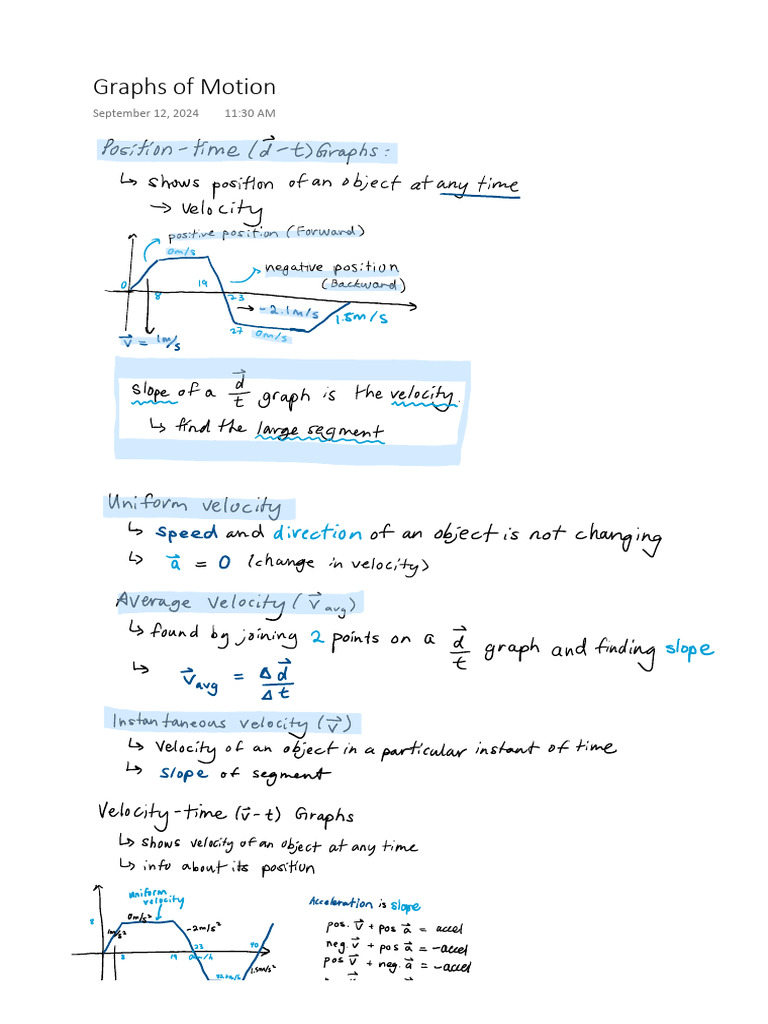 Graphs of Motion
September 12, 2024 11:30 AM
Position-time (d⃗-t) Graphs:
↳ shows position of an object at any time
→ velocity
positive position (Forward)
0m/s
negative position
(Backward)
0
8
19
23
→ -2.1m/s
27
0m/s
1.5m/s
v⃗ = 1m/s
slope of a d⃗/t graph is the velocity.
↳ find the large segment
Uniform velocity
↳ speed and direction of an object is not changing
↳ a⃗ = 0 (change in velocity)
Average velocity (v⃗avg)
↳ found by joining 2 points on a d⃗/t graph and finding slope
↳ v⃗avg = Δd⃗/Δt
Instantaneous velocity (v⃗)
↳ velocity of an object in a particular instant of time
↳ slope of segment
Velocity-time (v⃗-t) Graphs
↳ shows velocity of an object at any time
↳ info about its position
uniform
velocity
0m/s²
-2m/s²
8
1m/s²
8
19
23
40
1.5m/s²
Acceleration is slope
pos. v⃗ + pos a⃗ = accel
neg. v⃗ + pos a⃗ = -accel
pos v⃗ + neg. a⃗ = -accel